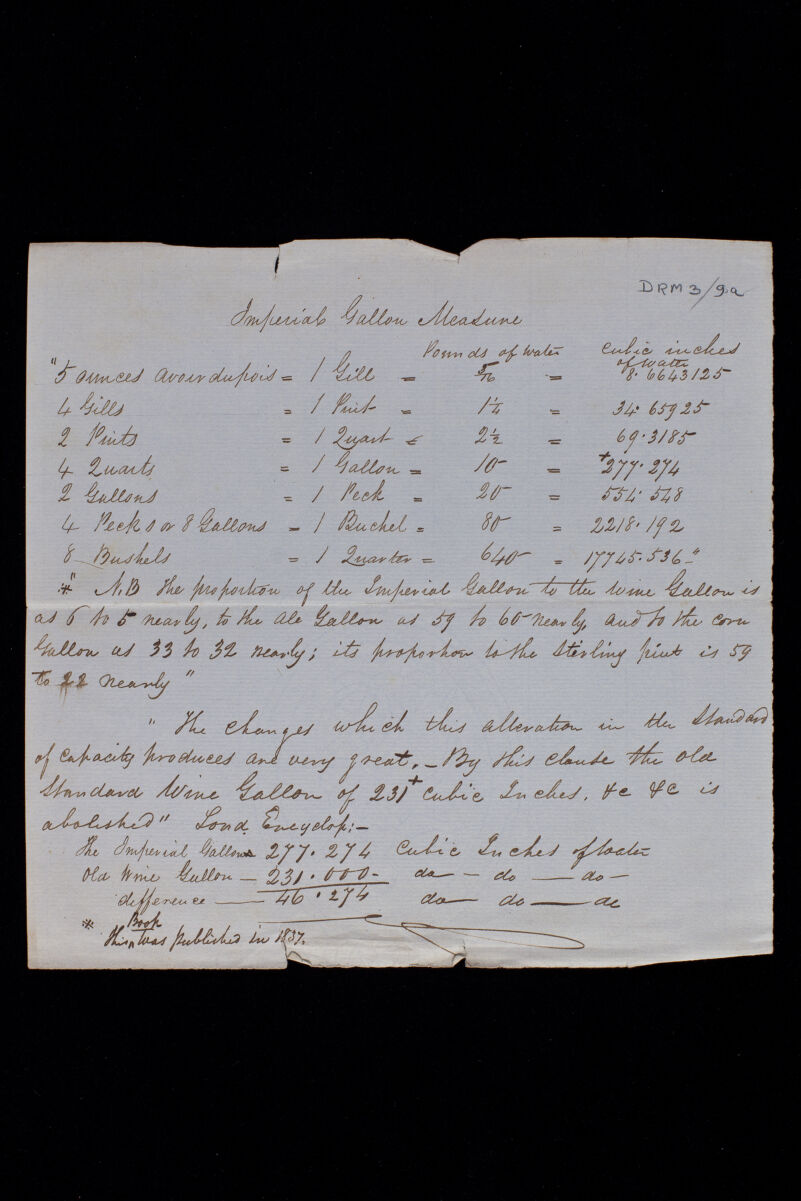 DRM 3/9a
Imperial Gallon Measure
Pounds of water cubic inches of water
"5 ounces avoirdupois = 1 Gill = 5/16 = 8.6643125
4 Gills = 1 Pint = 1¼ = 34.65925
2 Pints = 1 Quart = 2½ = 69.3185
4 Quarts = 1 Gallon = 10 = +277.274
2 Gallons = 1 Peck = 20 = 554.548
4 Pecks or 8 Gallons = 1 Buchel = 80 = 2218.192
8 Bushels = 1 Quarter = 640 = 17745.536"
*" N.B the proportion of the Imperial Gallon to the wine Gallon is
as 6 to 5 nearly, to the ale Gallon as 59 to 60 nearly, and to the corn
Gallon as 33 to 32 nearly; its proportion to the sterling pint is 59
to 22 nearly"
" The changes which this alteration in the Standard
of capacity produces are very great. – By this clause the old
Standard Wine Gallon of 231+ cubic Inches, &c &c is
abolished" Lond. Encyclop:–
The Imperial Gallon 277.274 Cubic Inches of water
Old Wine Gallon – 231.000 – do – do — do –
difference — 46.274 do – do — do
* This Book was published in 1837.